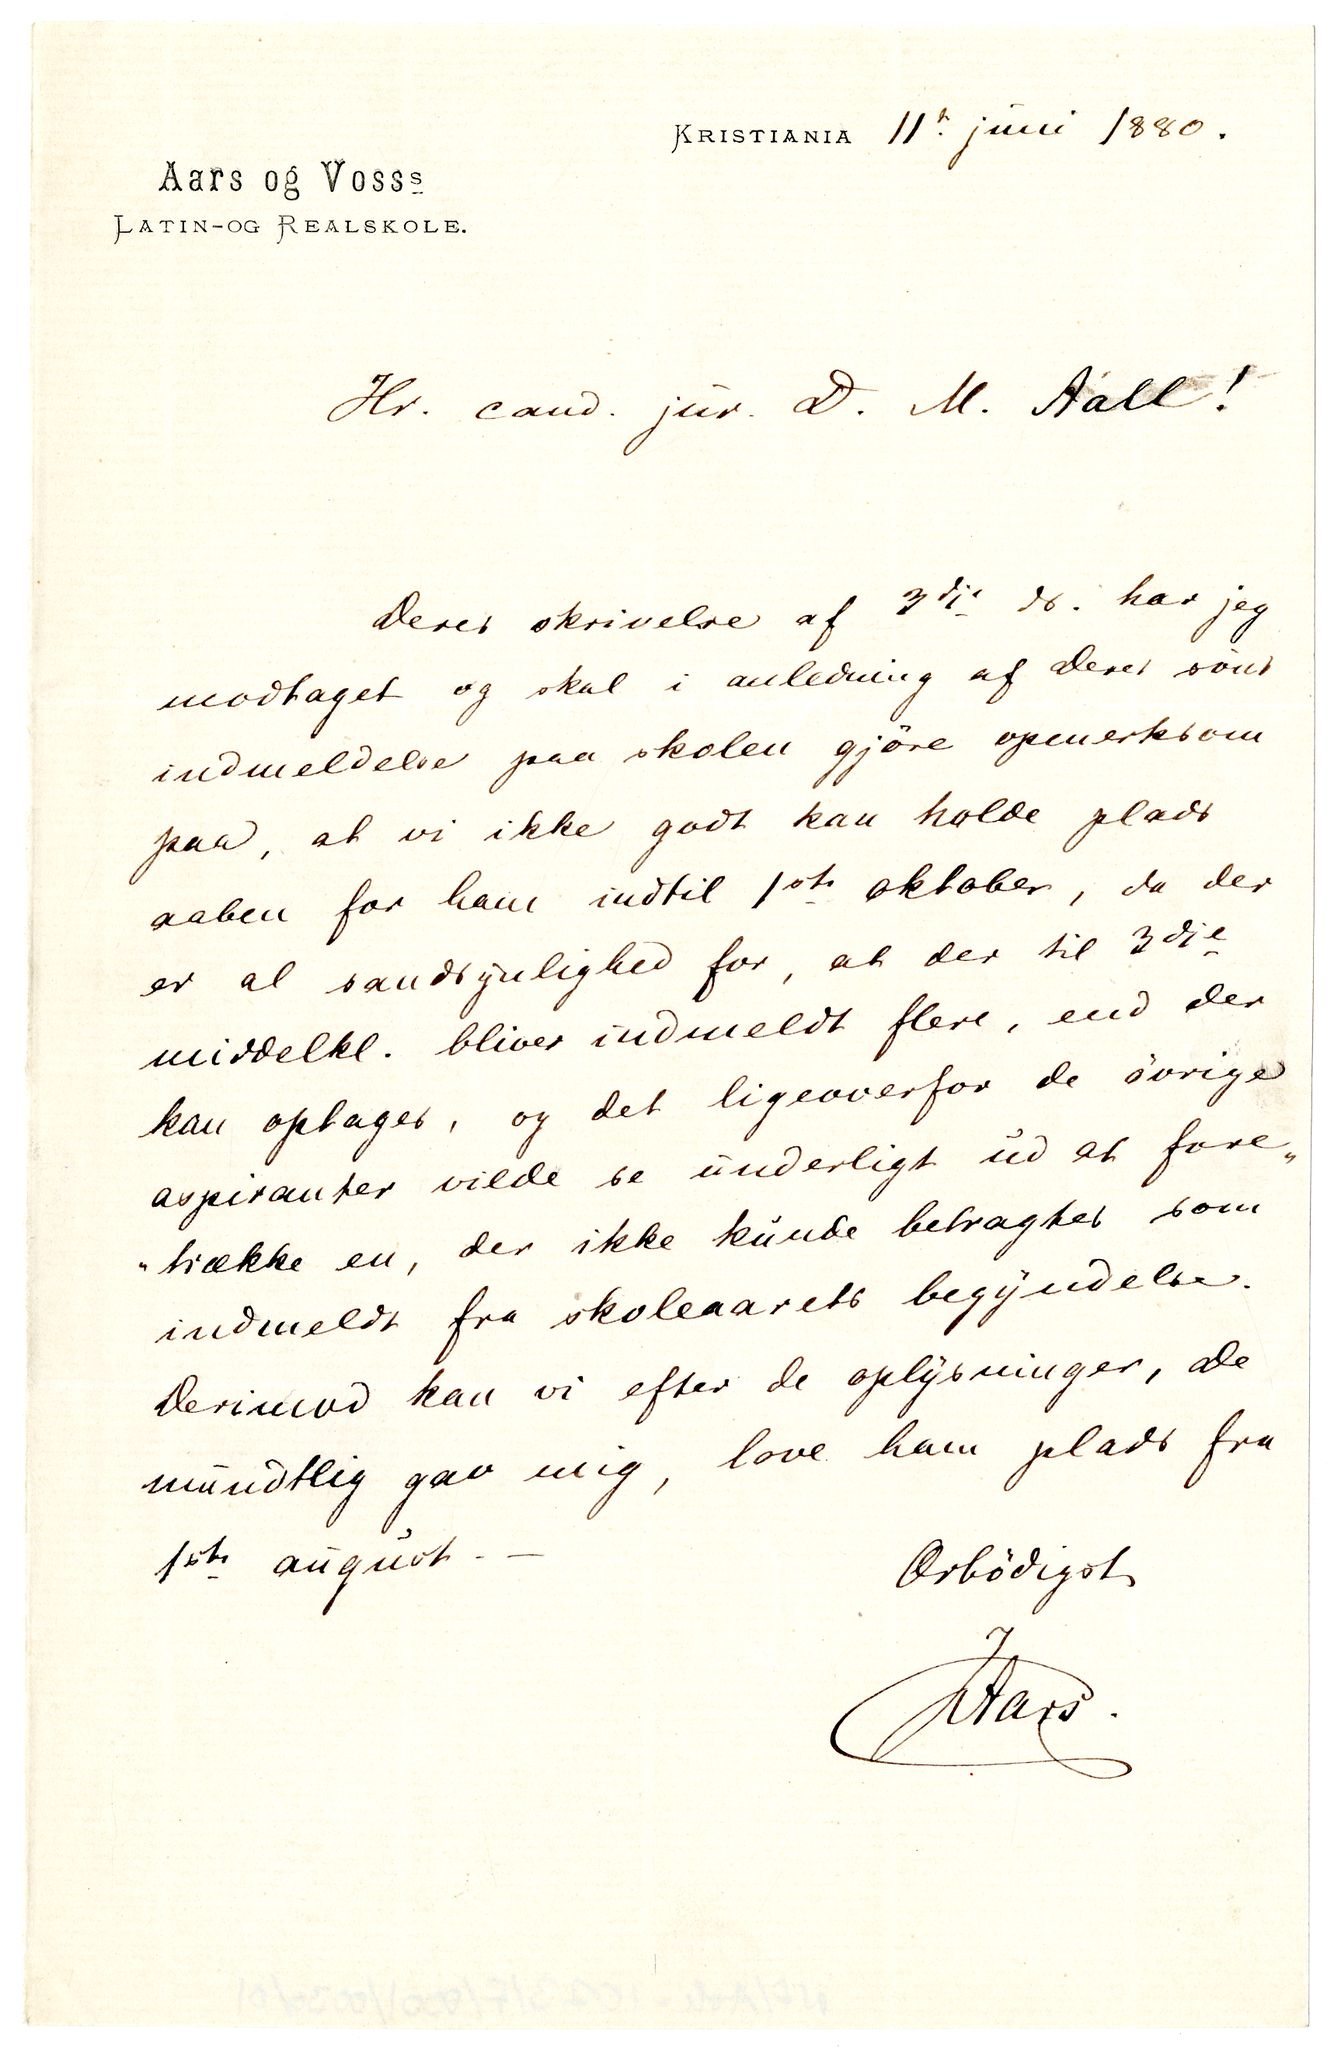 KRISTIANIA 11t. juni 1880.
Aars og Vosss
LATIN-OG REALSKOLE.
Hr. cand. jur. D. M. Aall!
Deres skrivelse af 3die ds. har jeg
modtaget og skal i anledning af Deres söns
indmeldelse paa skolen gjöre opmerksom
paa, at vi ikke godt kan holde plads
aaben for ham indtil 1ste oktober, da der
er al sandsynlighed for, at der til 3die
middelkl. bliver indmeldt flere, end der
kan optages, og det ligeoverfor de övrige
aspiranter vilde se underligt ud at fore„
„trække en, der ikke kunde betragtes som
indmeldt fra skoleaarets begyndelse.
Derimod kan vi efter de oplysninger, De
mundtlig gav mig, love ham plads fra
1ste august. —
Ærbödigst
JAars.